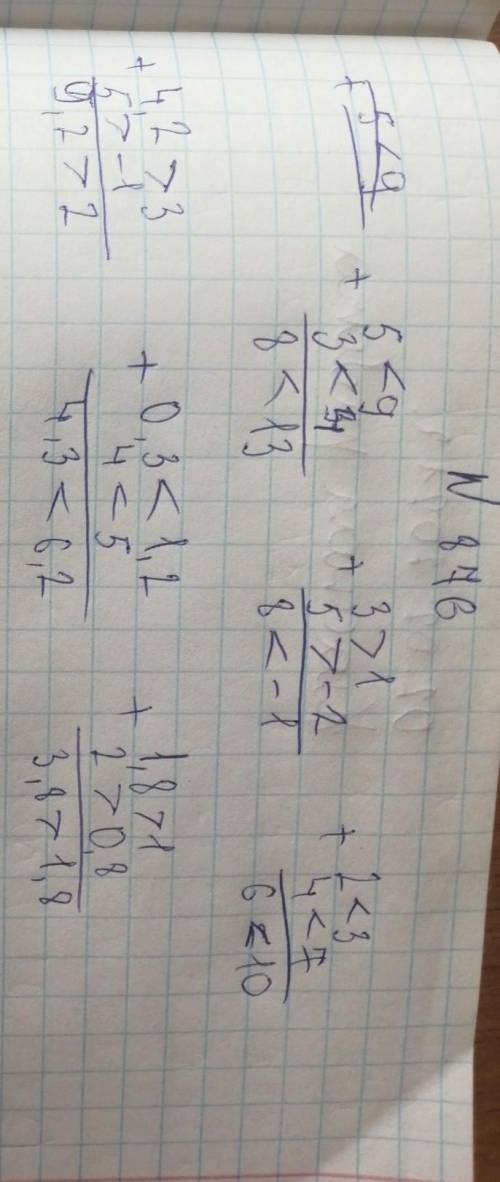 N 846
+ 5 < 9
+ 5 < 9
3 < 4
8 < 13
+ 3 > 1
5 > -2
8 < -1
+ 2 < 3
4 < 7
6 < 10
+ 4,2 > 3
5 > -1
9,2 > 2
+ 0,3 < 1,2
4 < 5
4,3 < 6,2
+ 1,8 > 1
2 > 0,8
3,8 > 1,8